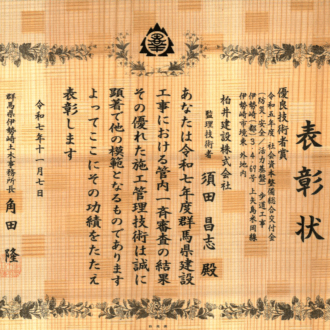 表彰状
優良技術者賞
令和五年度 社会資本整備総合交付金
(防災・安全/活力基盤)歩道工事
伊勢崎市境東 外地内
柏井建設株式会社
監理技術者
須田 昌志 殿
あなたは令和七年度群馬県建設
工事における管内一斉審査の結果
その優れた施工管理技術は誠に
顕著で他の模範となるものであります
よってここにその功績をたたえ
表彰します
令和七年十一月七日
群馬県伊勢崎土木事務所長 角田 隆